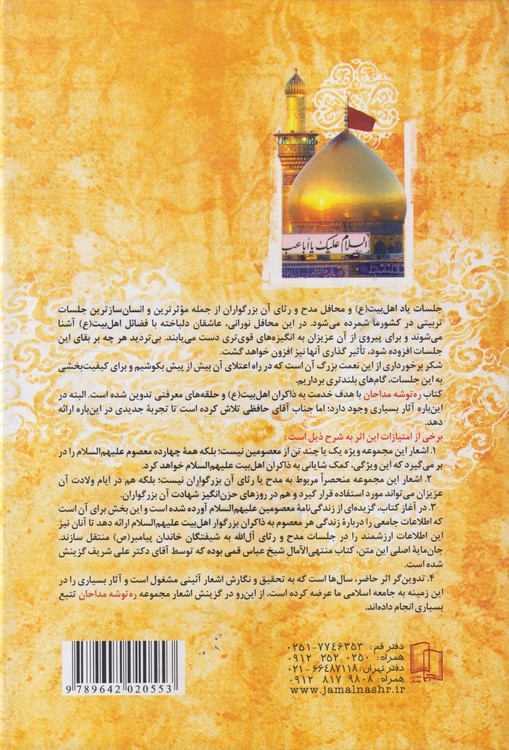 السلام علیک یا اباعب
جلسات یاد اهل‌بیت(ع) و محافل مدح و رثای آن بزرگواران از جمله مؤثرترین و انسان‌سازترین جلسات
تربیتی در کشورما شمرده می‌شود. در این محافل نورانی، عاشقان دلباخته با فضائل اهل‌بیت(ع) آشنا
می‌شوند و برای پیروی از آن عزیزان به انگیزه‌های قوی‌تری دست می‌یابند. بی‌تردید هر چه بر بقای این
جلسات افزوده شود، تأثیر گذاری آنها نیز افزون خواهد گشت.
شکر برخورداری از این نعمت بزرگ آن است که در راه اعتلای آن بیش از پیش بکوشیم و برای کیفیت‌بخشی
به این جلسات، گام‌های بلندتری برداریم.
کتاب ره‌توشه مداحان با هدف خدمت به ذاکران اهل‌بیت(ع) و حلقه‌های معرفتی تدوین شده است. البته در
این‌باره آثار بسیاری وجود دارد؛ اما جناب آقای حافظی تلاش کرده است تا تجربهٔ جدیدی در این‌باره ارائه
دهد.
برخی از امتیازات این اثر به شرح ذیل است:
۱. اشعار این مجموعه ویژه یک یا چند تن از معصومین نیست؛ بلکه همهٔ چهارده معصوم علیهم‌السلام را در
بر می‌گیرد که این ویژگی، کمک شایانی به ذاکران اهل‌بیت علیهم‌السلام خواهد کرد.
۲. اشعار این مجموعه منحصراً مربوط به مدح یا رثای آن بزرگواران نیست؛ بلکه هم در ایام ولادت آن
عزیزان می‌تواند مورد استفاده قرار گیرد و هم در روزهای حزن‌انگیز شهادت آن بزرگواران.
۳. در آغاز کتاب، گزیده‌ای از زندگی‌نامهٔ معصومین علیهم‌السلام آورده شده است و این بخش برای آن است
که اطلاعات جامعی را دربارهٔ زندگی هر معصوم به ذاکران بزرگوار اهل‌بیت علیهم‌السلام ارائه دهد تا آنان نیز
این اطلاعات ارزشمند را در جلسات مدح و رثای آل‌الله به شیفتگان خاندان پیامبر(ص) منتقل سازند.
جان‌مایهٔ اصلی این متن، کتاب منتهی‌الآمال شیخ عباس قمی بوده که توسط آقای دکتر علی شریف گزینش
شده است.
۴. تدوین‌گر اثر حاضر، سال‌ها است که به تحقیق و نگارش اشعار آئینی مشغول است و آثار بسیاری را در
این زمینه به جامعه اسلامی ما عرضه کرده است، از این‌رو در گزینش اشعار مجموعه ره‌توشه مداحان تتبع
بسیاری انجام داده‌اند.
دفتر قم: ۰۲۵۱-۷۷۴۶۳۵۳
همراه: ۰۹۱۲ ۲۵۲ ۰۲۵۰
دفتر تهران: ۰۲۱-۶۶۴۸۷۱۱۸
همراه: ۰۹۱۲ ۸۱۷ ۹۸۰۸
www.jamalnashr.ir
9 789642 020553